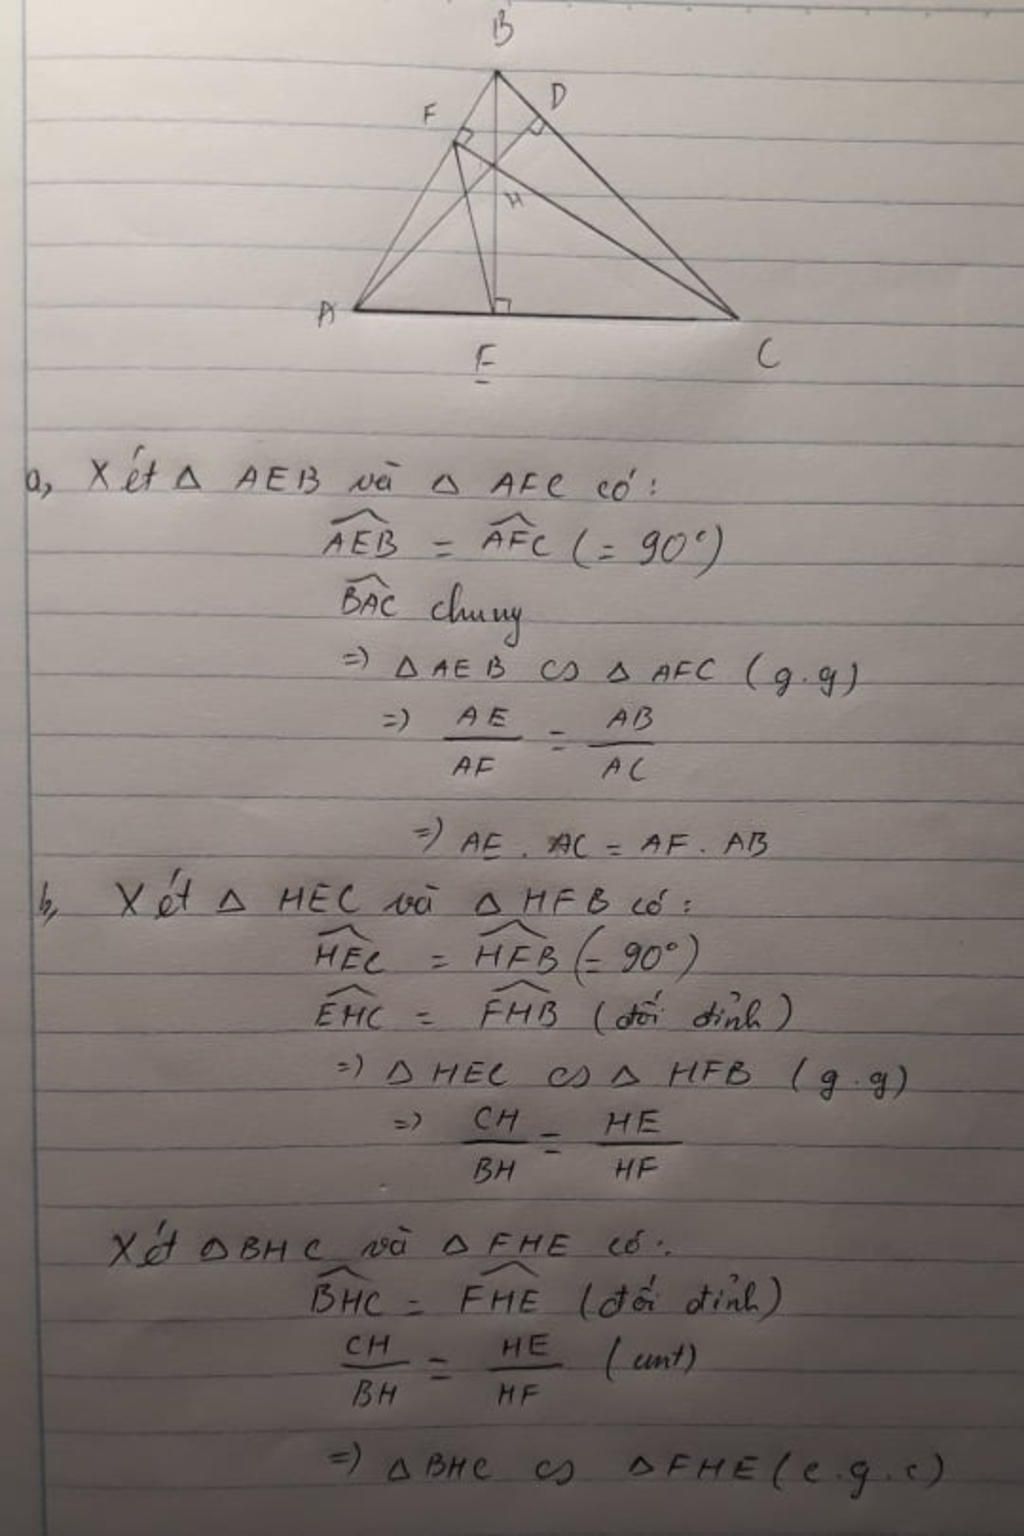 B
F
D
H
A
E
C
a, Xét △ AEB và △ AFC có :
$\widehat{AEB}$ = $\widehat{AFC}$ (= 90°)
$\widehat{BAC}$ chung
=) △ AEB ∽ △ AFC (g.g)
=) $\frac{AE}{AF}$ = $\frac{AB}{AC}$
=) AE . AC = AF . AB
b, Xét △ HEC và △ HFB có :
$\widehat{HEC}$ = $\widehat{HFB}$ (= 90°)
$\widehat{EHC}$ = $\widehat{FHB}$ (đối đỉnh)
=) △ HEC ∽ △ HFB (g.g)
=) $\frac{CH}{BH}$ = $\frac{HE}{HF}$
Xét △ BHC và △ FHE có :
$\widehat{BHC}$ = $\widehat{FHE}$ (đối đỉnh)
$\frac{CH}{BH}$ = $\frac{HE}{HF}$ (cmt)
=) △ BHC ∽ △ FHE (c.g.c)